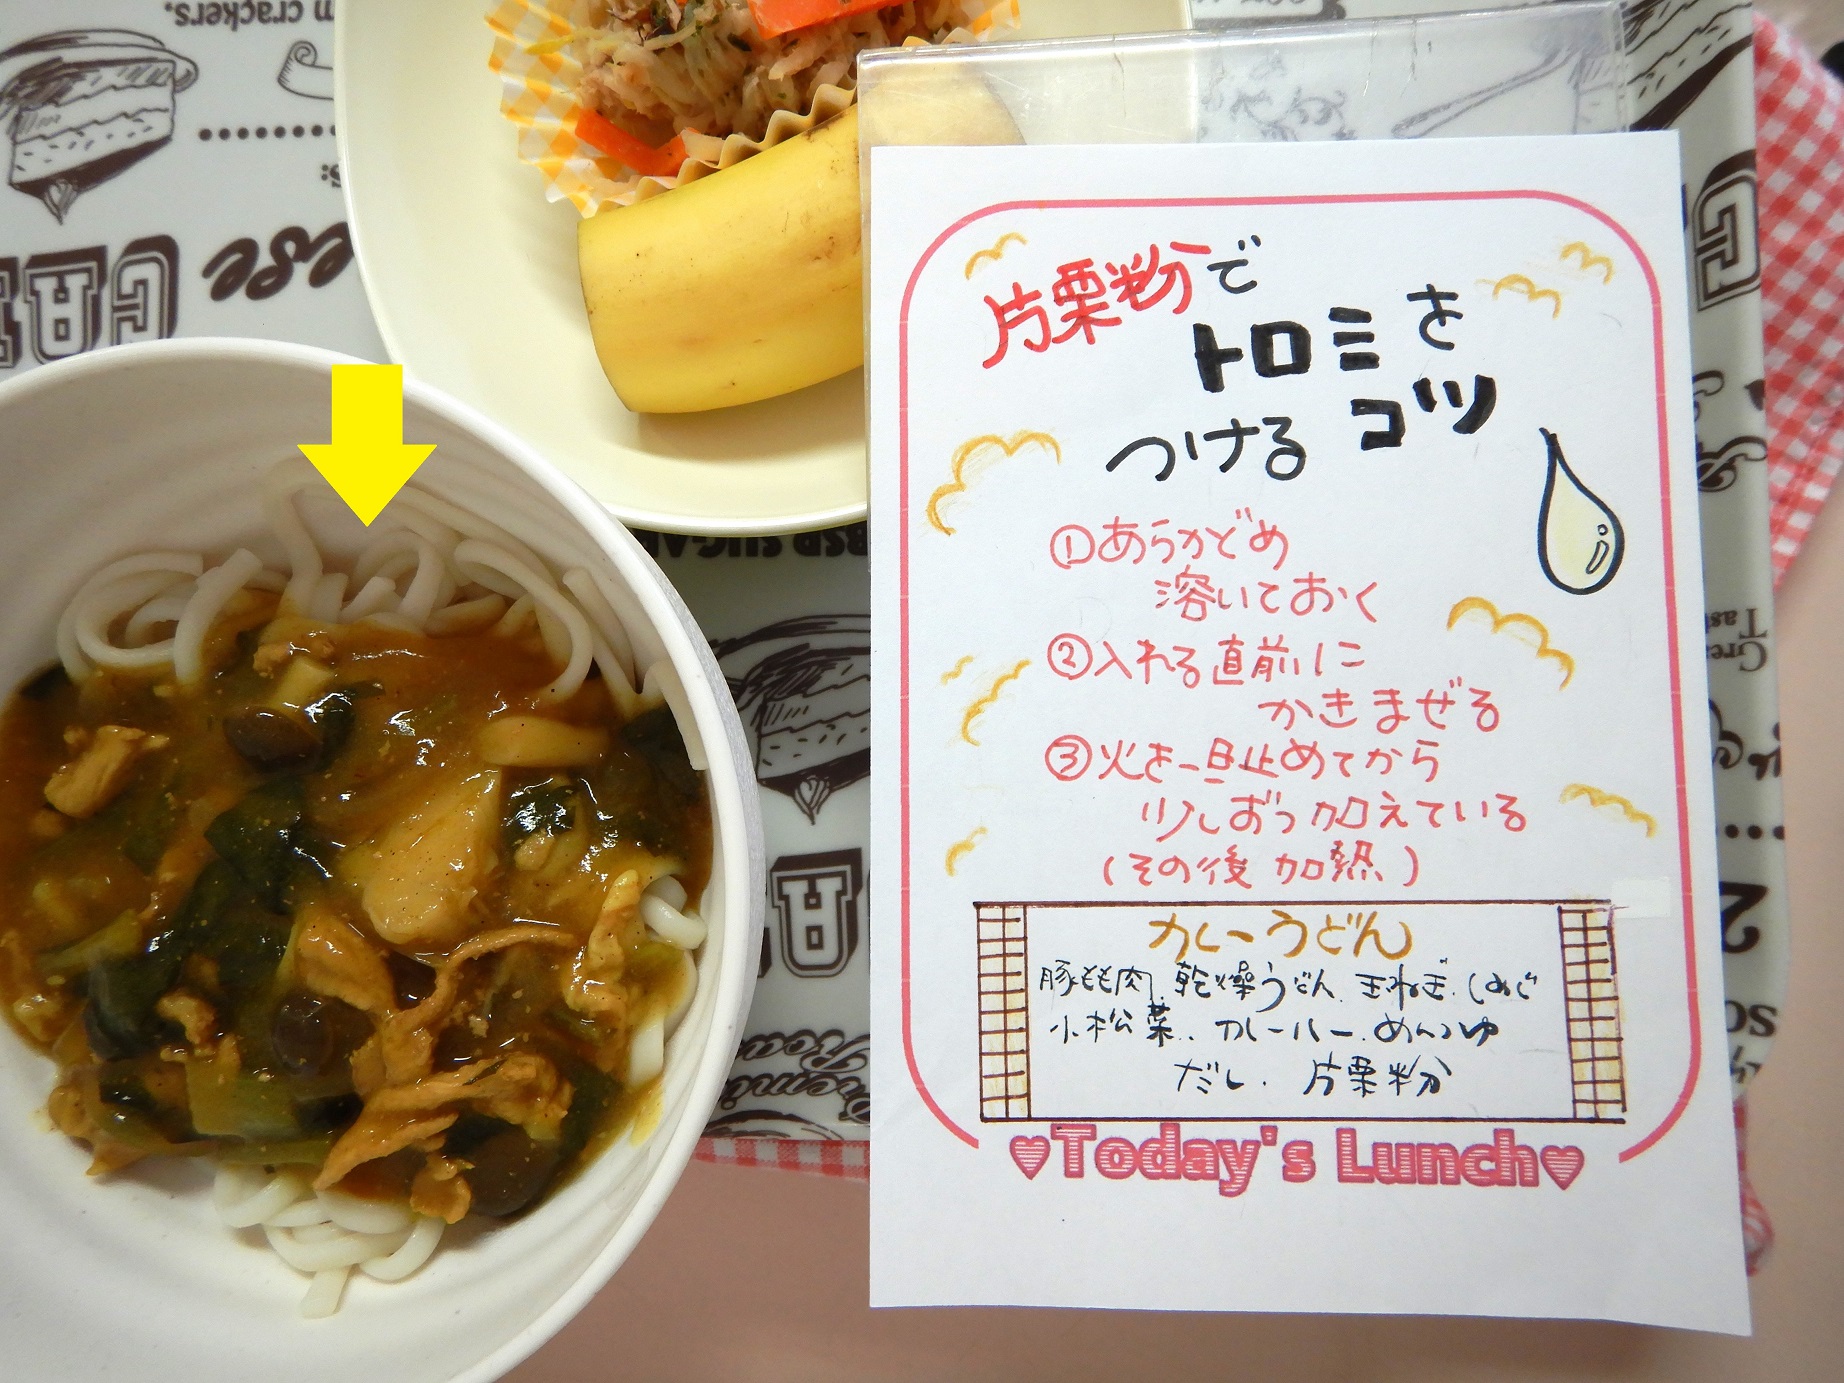 片栗粉で
トロミを
つけるコツ
①あらかじめ
溶いておく
②入れる直前に
かきまぜる
③火を一旦止めてから
少しずつ加えている
(その後 加熱)
カレーうどん
豚もも肉、乾燥うどん、玉ねぎ、しめじ
小松菜、カレールー、めんつゆ
だし、片栗粉
♥Today's Lunch♥
m crackers.
ese